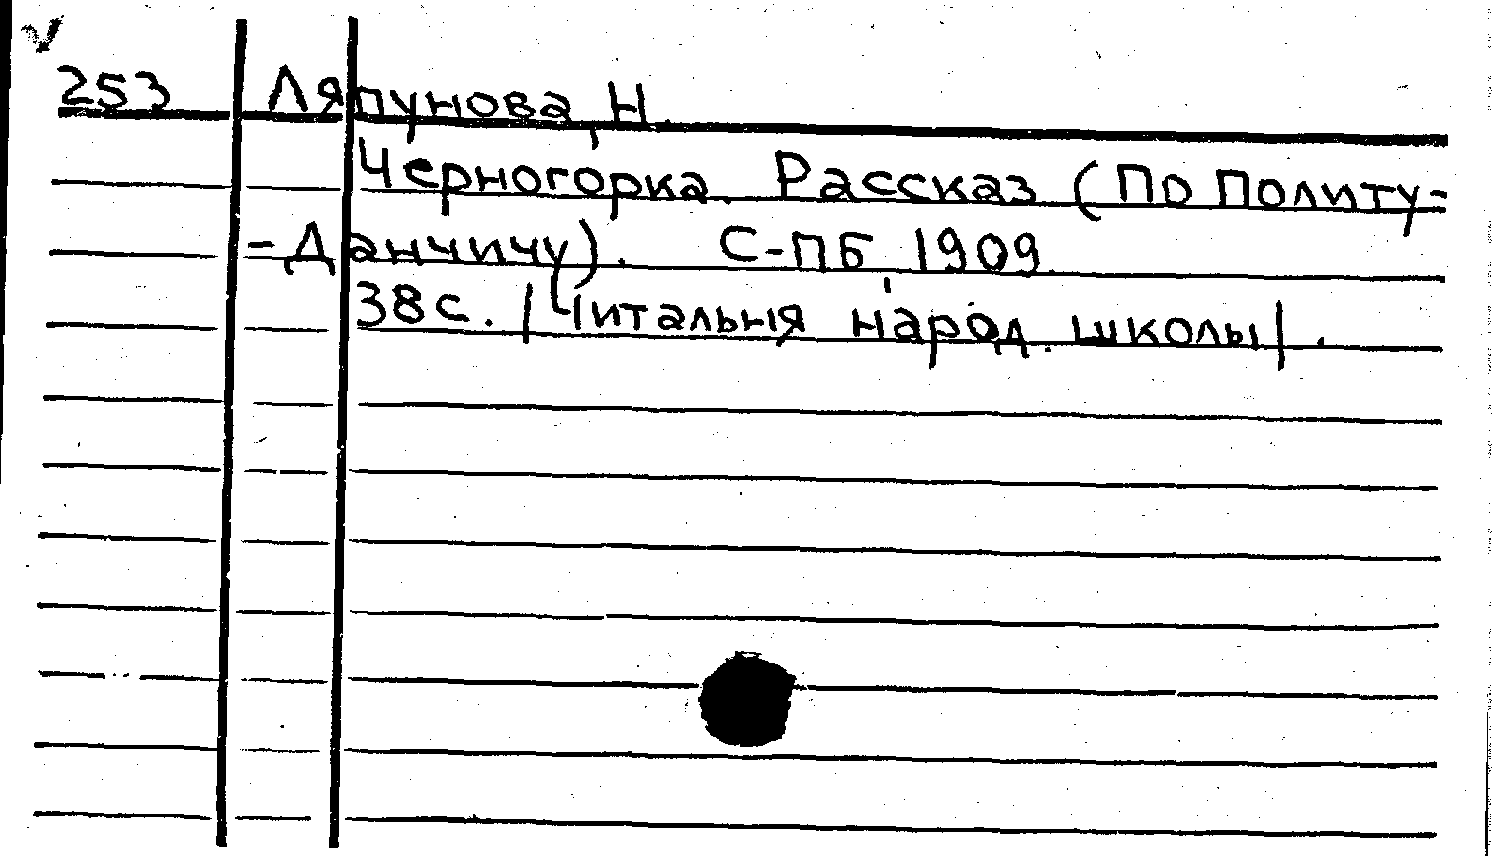 253 Ляпунова, Н.
Черногорка. Рассказ (По Политу-
-Данчичу). С-ПБ, 1909.
38 с. /Читальня народ. школы/.